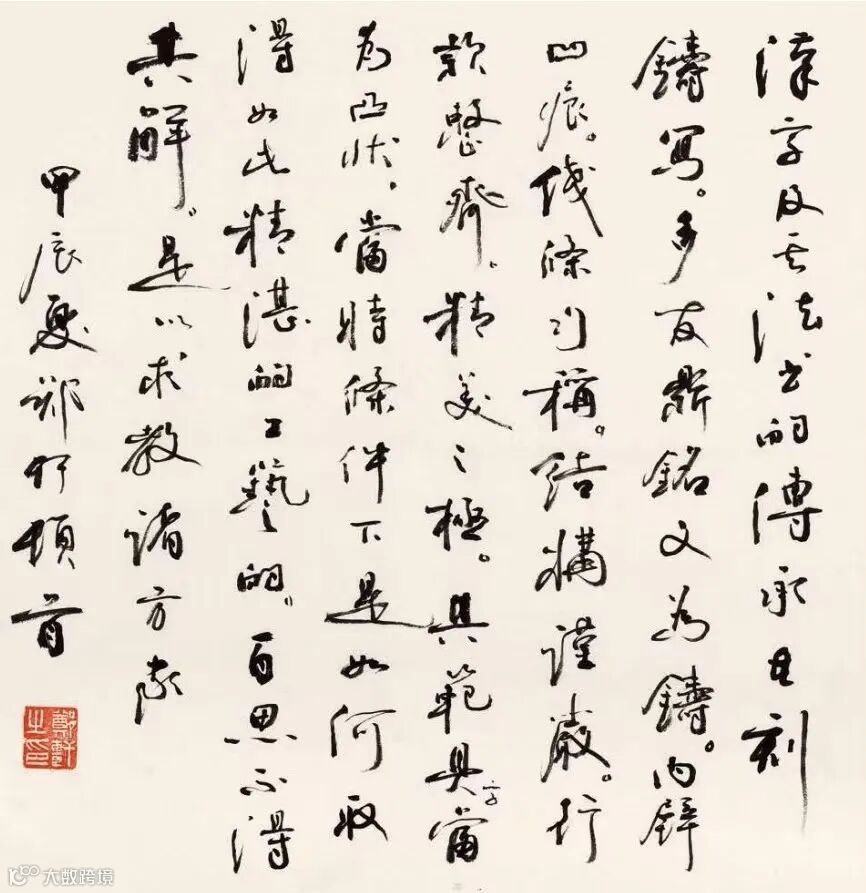 漢字及其法书的傳承刻
鑄写。多友鼎銘文为鑄。内壁
凹痕。綫條匀稱。结構謹嚴。行
款整齊。精美之極。其範具字當
为凸状。當時條件下是如何取
得如此精湛的工藝的。百思不得
其解。是以求教諸方家
甲辰夏鄭軒頓首
鄭軒之印
大数跨境